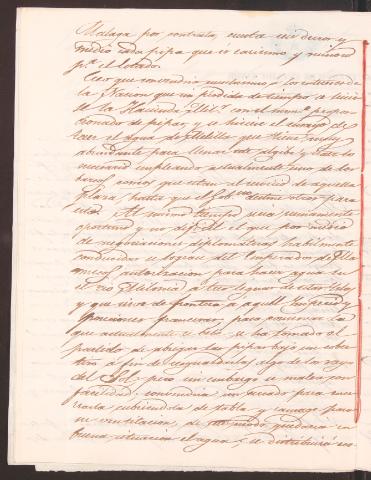 Malaga por contrata, cuesta un duro y
medio cada pipa que es carisimo y ruinoso
pª el Estado.
Creo que convendria muchisimo a los intereses de
la Nacion que sin perdida de tiempo se hiciese
la Hacienda Milr. con el numº propor-
cionado de pipas y se hiciese el ensayo de
traer el agua de Melilla que tiene muy
abundante para llenar este algibe y
necesario empleando actualmente uno de los
barcos que estan al servicio de aquella
plaza, hasta que el Gobno. destine otros para
esto. Al mismo tiempo seria sumamente
oportuno y no dificil el que por medio
de negociaciones diplomaticas habilmente
conducidas se lograse del Emperador de Ma-
rruecos autorizacion para hacer agua en
el rio Muluvia a tres leguas de estas Yslas
y que sirve de frontera a aquel Ymperio y
posesiones francesas; para conservar la
que actualmente se bebe, se ha tomado el
partido de abrigar las pipas bajo un cober-
tizo a fin de resguardarlas algo de los rayos
del Sol; pero sin embargo se malea con
facilidad; convendria
cubriendola de tabla y
su ventilacion, de este modo quedaria en
buena situacion el agua, y se distribuirá